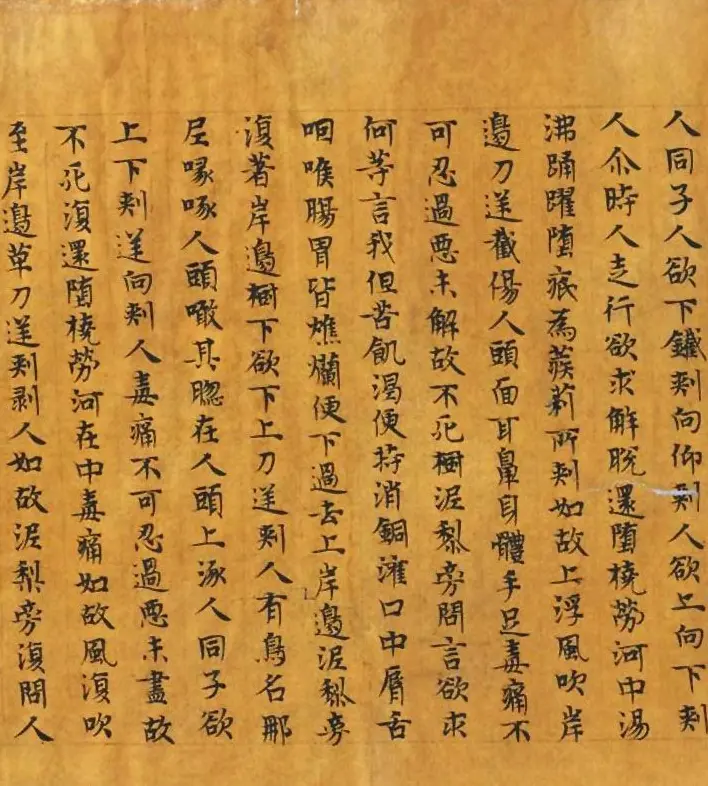 人同子人欲下鐵刾向仰刾人欲上向下刾
人尒時人走行欲求解脫還墮橈勞河中湯
沸踊躍墮底為蒺䔧所刾如故上浮風吹岸
邊刀逆截傷人頭面耳鼻身體手足毒痛不
可忍過惡未解故不死樹泥黎旁問言欲求
何等言我但苦飢渴便持消銅灌口中脣舌
咽喉腸胃皆燋爛便下過去上岸邊泥黎旁
復著岸邊樹下欲下上刀逆刾人有鳥名那
㞐喙啄人頭噉其𦛁在人頭上涿人同子欲
上下刾逆向刾人毒痛不可忍過惡未盡故
不死復還墮橈勞河在中毒痛如故風復吹
至岸邊草刀逆刾剥人如故泥梨旁復問人